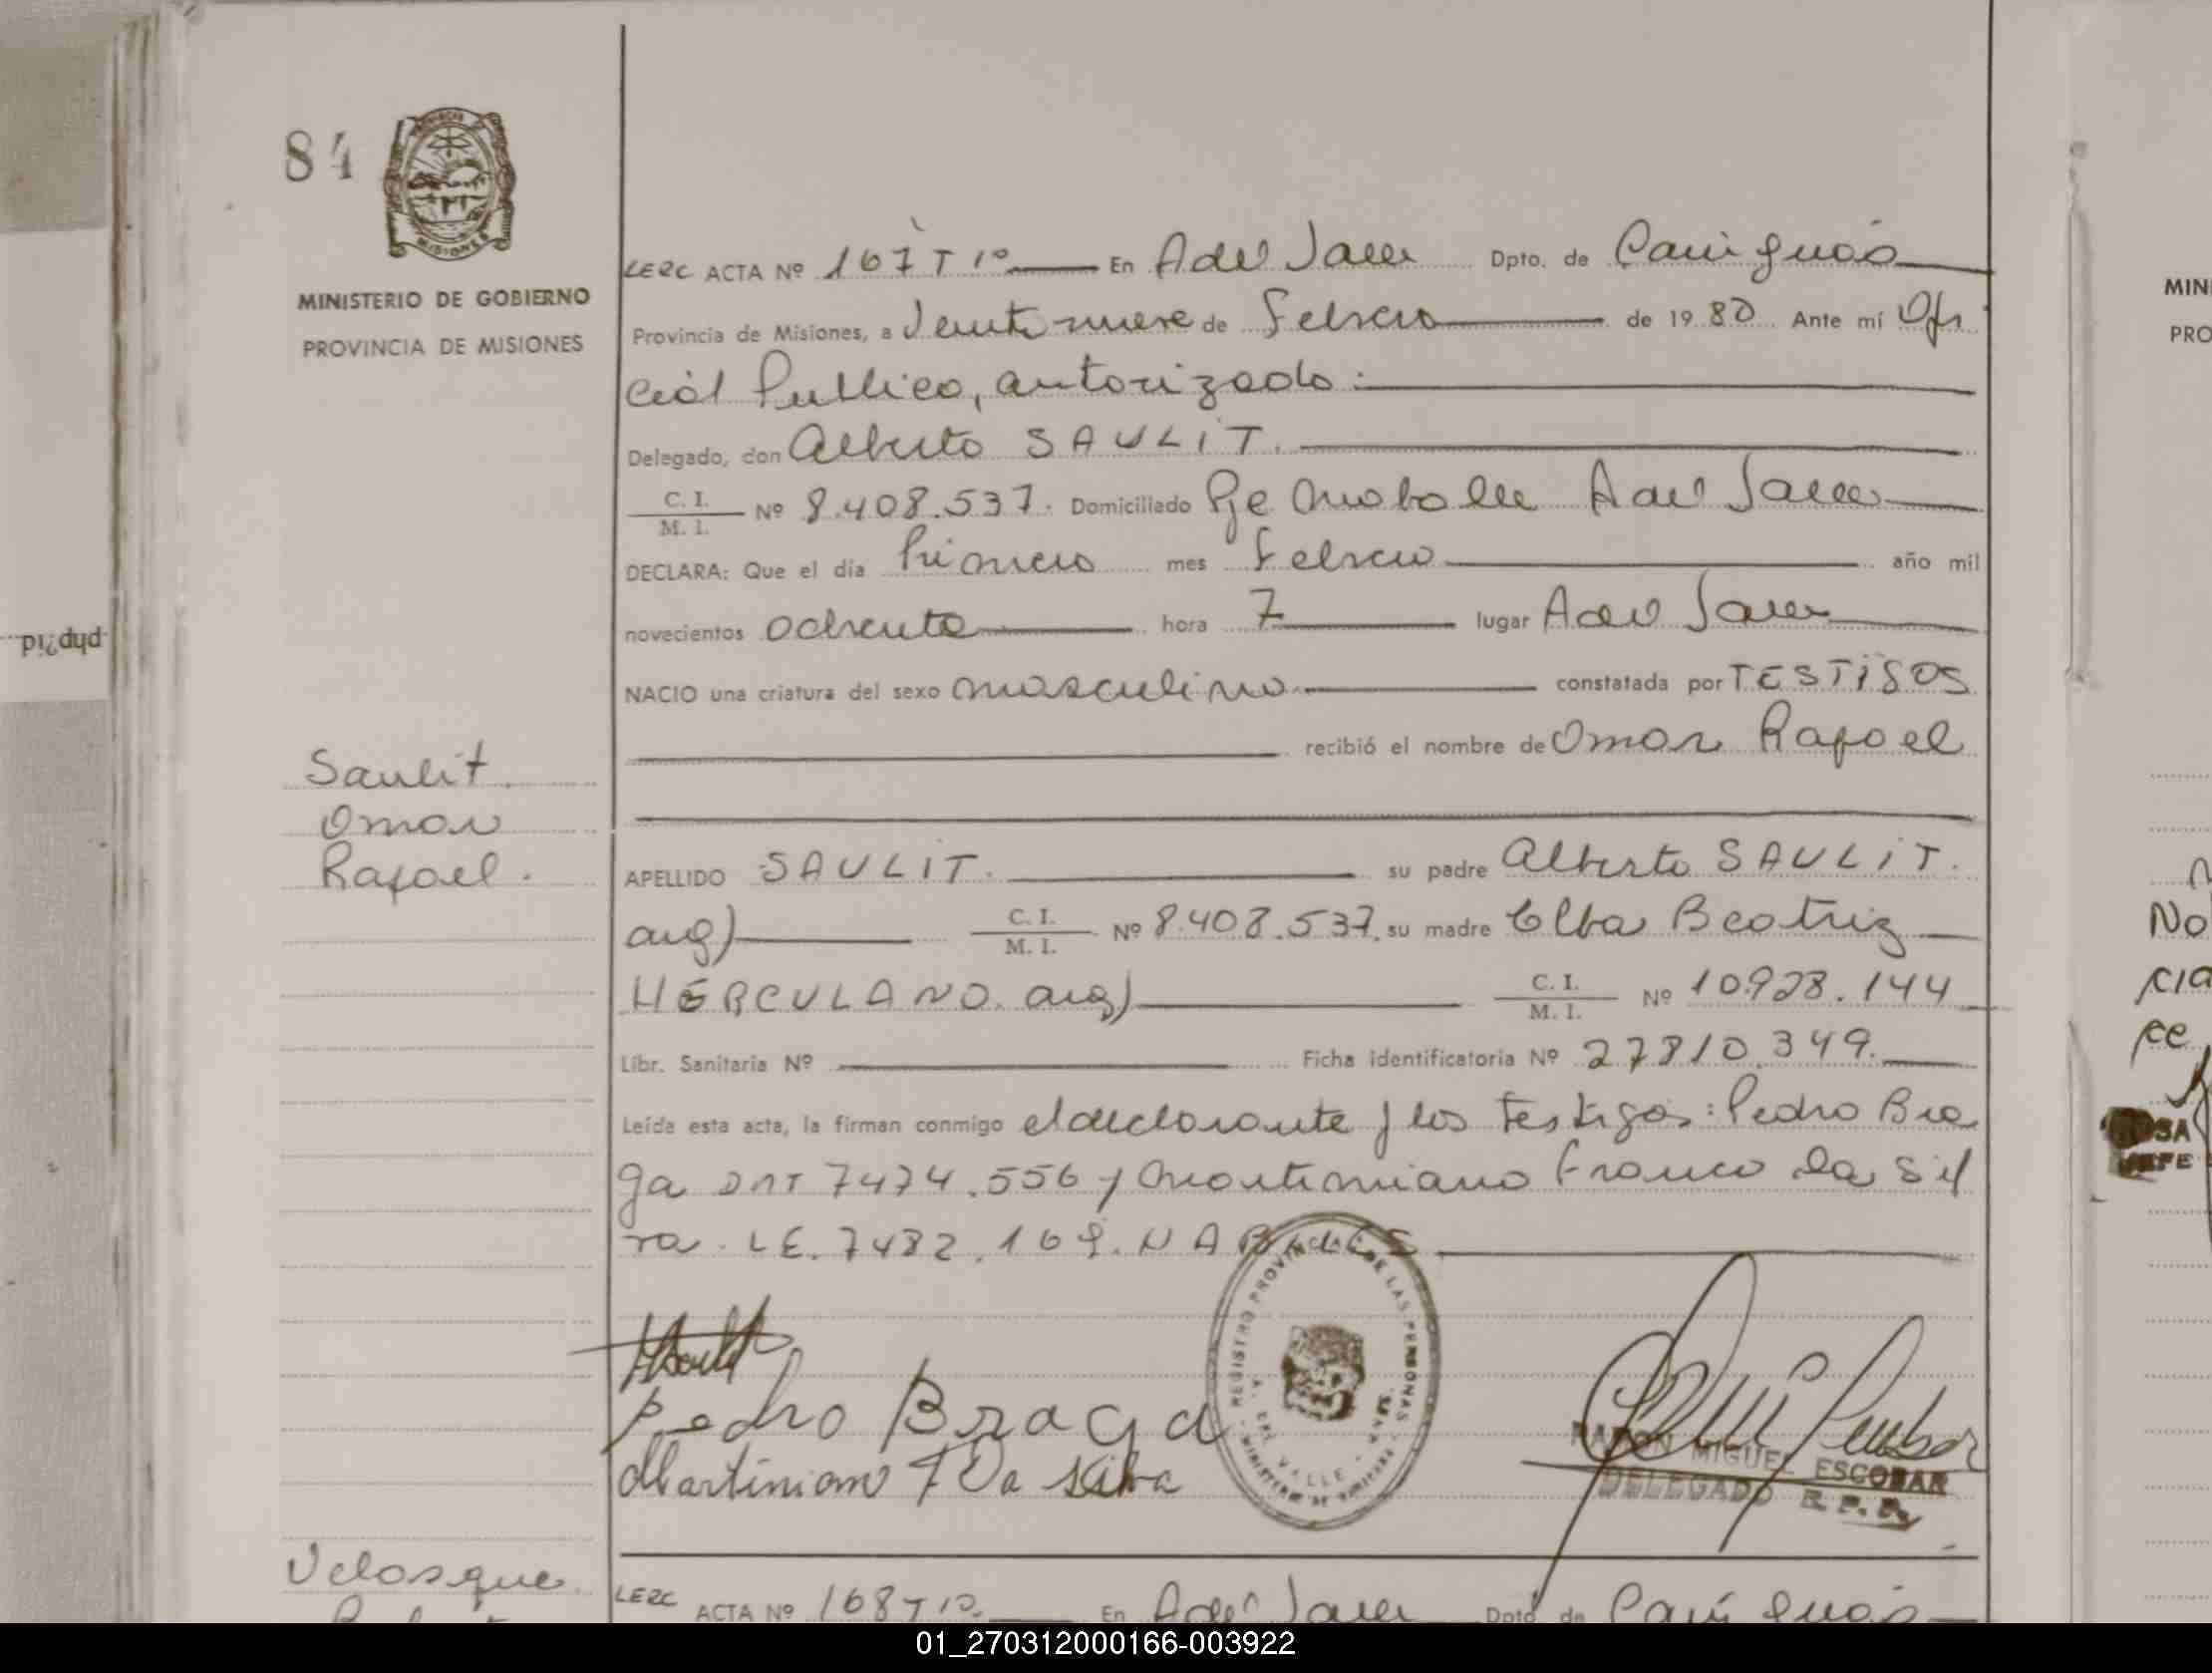 84
MINISTERIO DE GOBIERNO
PROVINCIA DE MISIONES
LERC ACTA Nº 167 T 1º En A del Valle Dpto. de Cainguás
Provincia de Misiones, a Veintinueve de Febrero de 1980 Ante mí Ofi
cial Publico, autorizado:
Delegado, don Alberto SAULIT.
C. I.
M. I. Nº 8.408.537. Domiciliado Pje Ade Valle
DECLARA: Que el día Primero mes Febrero año mil
novecientos ochenta hora 7 lugar A del Valle
NACIO una criatura del sexo masculino constatada por TESTIGOS
recibió el nombre de Omar Rafael
Saulit
Omar
Rafael.
APELLIDO SAULIT. su padre Alberto SAULIT.
arg) C. I.
M. I. Nº 8.408.537. su madre Elba Beatriz
HÉRCULANO. arg) C. I.
M. I. Nº 10.928.144
Libr. Sanitaria Nº Ficha identificatoria Nº 27810.349.
Leída esta acta, la firman conmigo el declarante y los Testigos: Pedro Bra
ga DNI 7474.556 y Franco Da Sil
va. LE. 7482.169.
REGISTRO PROVINCIAL DE LAS PERSONAS
A. DEL VALLE
Pedro Braga
Martiniano F Da Silva
RAMON MIGUEL ESCOBAR
DELEGADO R. P. P.
Velasque
LERC ACTA Nº 168 T 1º. En A del Valle Dpto. de Cainguás
MIN
PRO
php?id
01_270312000166-003922